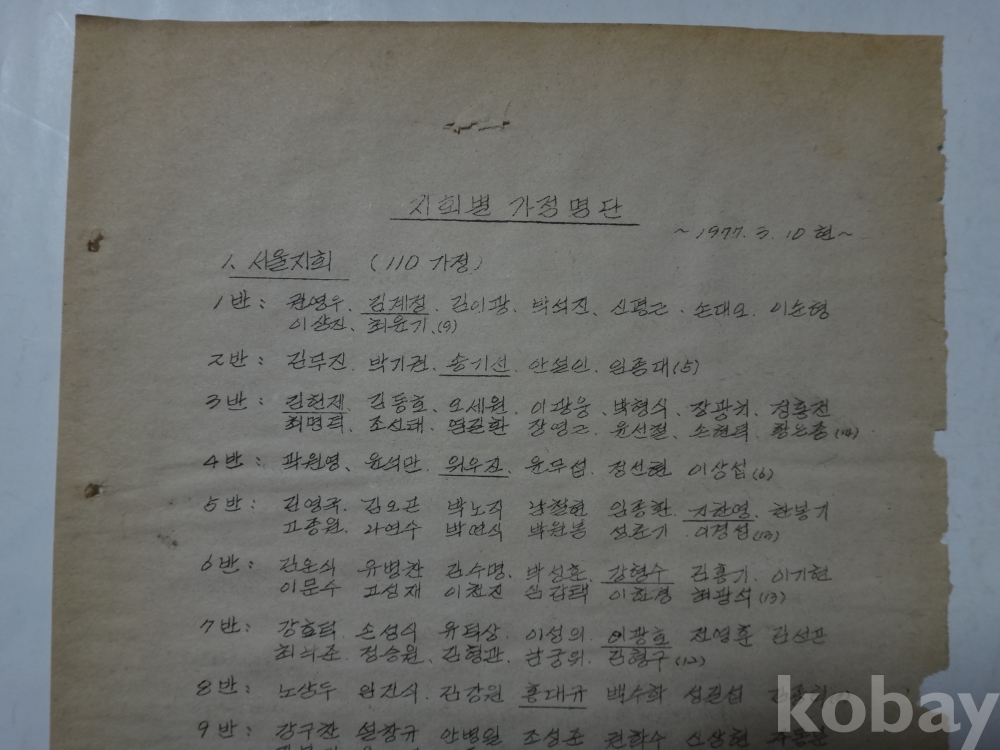 지회별 가정명단
~1977. 3. 10 현~
1. 서울지회 (110 가정)
1반: 권영우. 김계철. 김이광. 박석진. 신평근. 손대오. 이순형
이상진. 최윤기.(9)
2반: 김무진. 박기권. 송기선. 안설인. 임종대(5)
3반: 김헌재. 김동호. 오세원. 이광웅. 박형식. 장광치. 정흥진
최명덕. 조선태. 장영근. 윤선철. 손현덕. (14)
4반: 곽원영. 윤석만. 위우진. 윤무섭. 정선현 이상섭(6)
5반: 김영국. 김오곤 박노직 임종환. 지한열. 한봉기
고종원. 라연수 박연식 박원봉 성준기. 이경섭(13)
6반: 김운식 유병찬 김수명. 박성훈. 강형수 김흥기. 이기현
이문수 고성재 이천진 심갑택 이헌영 최광석(13)
7반: 강효덕. 손성식 유덕상. 이성의. 이광호 전영훈 김석관
최석준. 정승원. 김형관. 남궁위. 김형구(12)
8반: 노상두 엄진식. 김강원 홍대규 백수학 성길섭
9반: 강구찬 설창규 안병일 조성준 권학수 신상현
kobay